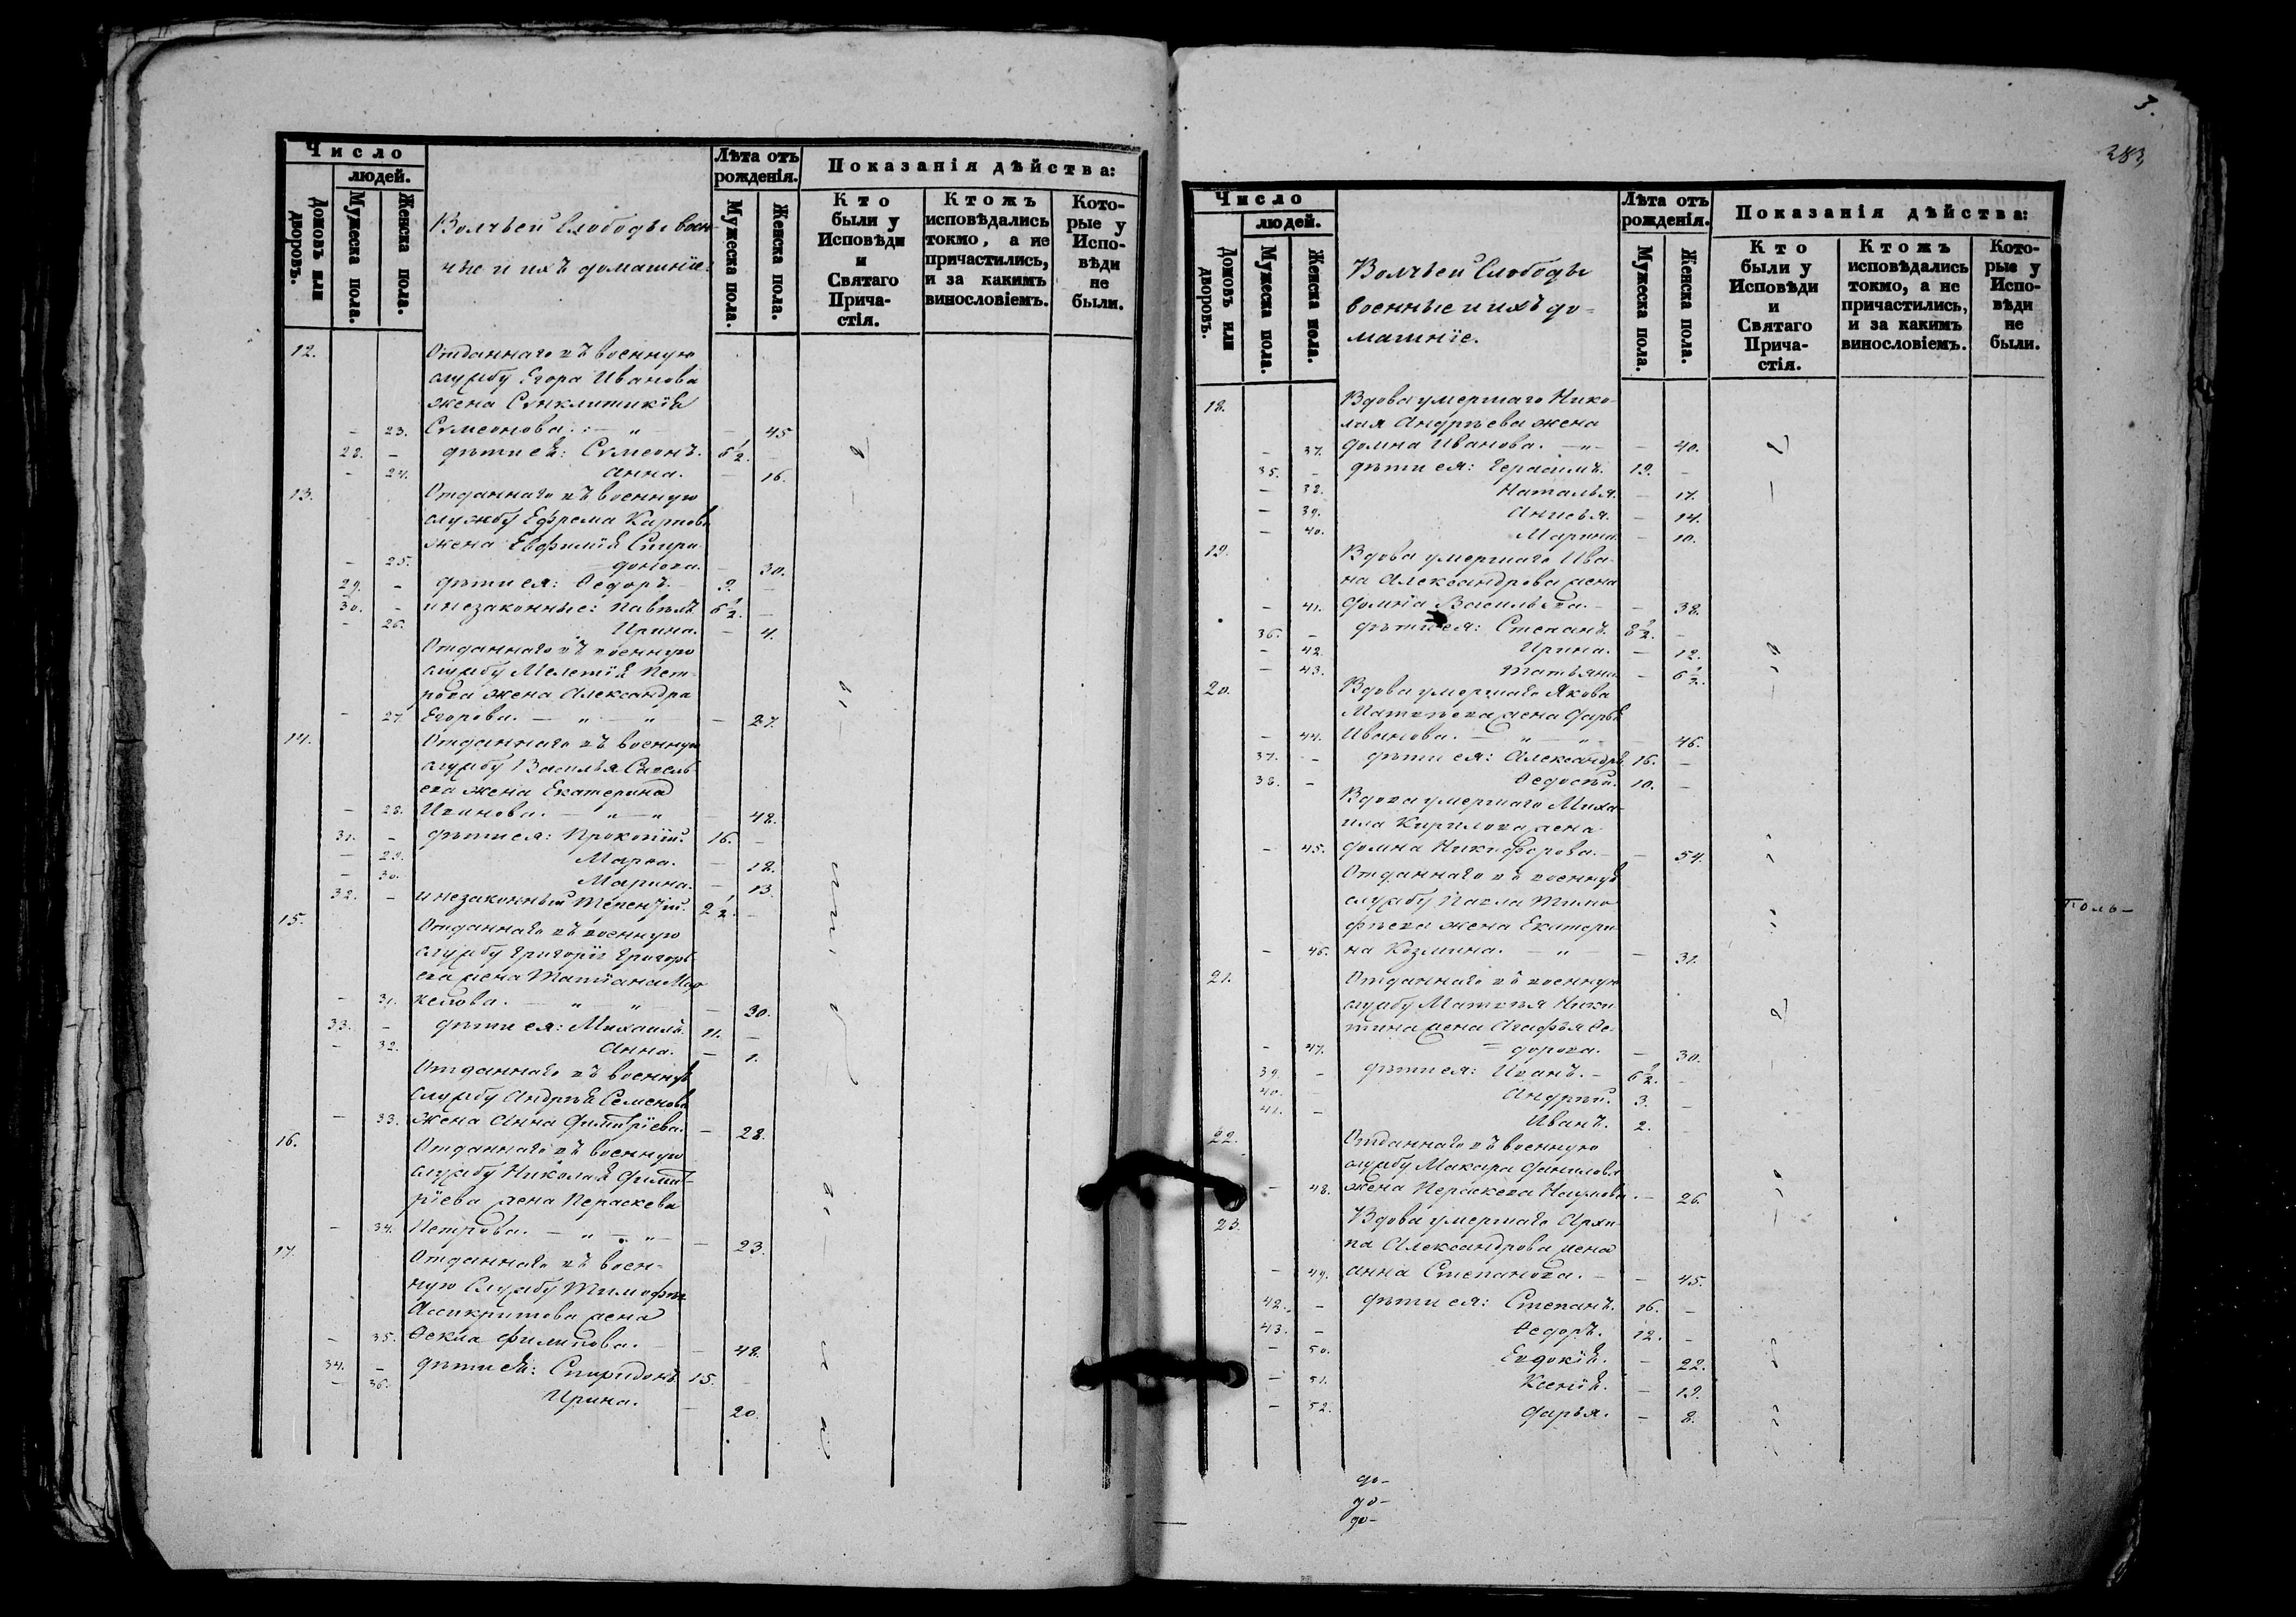 Число
людей.
Домовъ или дворовъ.
Мужеска пола.
Женска пола.
Волчьей Слободы воен-
ные и ихъ домашніе.
Лѣта отъ рожденія.
Мужеска пола.
Женска пола.
Показанія дѣйства:
Кто были у Исповѣди и Святаго Прича-стія.
Ктожъ исповѣдались токмо, а не причастились, и за какимъ винословіемъ.
Кото-рые у Испо-вѣди не были.
12. Отданнаго въ военную
службу Егора Иванова
жена Сѵнклитикія
- 23. Сѵмеонова. — „ - 45
28. - дѣти ея: Сѵмеонъ. 6 1/2. -
- 24. Анна. - 16.
13. Отданнаго въ военную
службу Ефрема Карпова
жена Евфимія Спири-
- 25. донова. - 30.
29. - дѣти ея: Ѳедоръ. 9. -
30. - и незаконные: Павелъ 6 1/2. -
- 26. Ирина. - 4.
Отданнаго въ военную
службу Мелетія Пет-
рова жена Александра
- 27. Егорова. — „ — „ - 27.
14. Отданнаго въ военную
службу Василья Савель
ева жена Екатерина
- 28. Иванова. — „ — „ - 48.
31. - дѣти ея: Прокопій. 16. -
- 29. Марѳа. - 18.
- 30. Марина. - 13.
32. - и незаконный Терентій. 2 1/2. -
15. Отданнаго въ военную
службу Григорія Григорь
ева жена Татіана Мар
- 31. келова. — „ „ - 30.
33. - дѣти ея: Михаилъ. 11. -
- 32. Анна. - 1.
Отданнаго въ военную
службу Андрея Семенова
- 33. жена Анна Димитріева. - 28.
16. Отданнаго въ военную
службу Николая Димит-
ріева жена Пераскева
- 34. Петрова. — „ — „ - 23.
17. Отданнаго въ воен-
ную Службу Тимофея
Ассикритова жена
- 35. Ѳекла Филипова. - 48.
34. - дѣти ея: Спиридонъ 15. -
- 36. Ирина. - 20.
3.
283
Число
людей.
Домовъ или дворовъ.
Мужеска пола.
Женска пола.
Волчьей Слободы
военные и ихъ до-
машніе.
Лѣта отъ рожденія.
Мужеска пола.
Женска пола.
Показанія дѣйства:
Кто были у Исповѣди и Святаго Прича-стія.
Ктожъ исповѣдались токмо, а не причастились, и за какимъ винословіемъ.
Кото-рые у Испо-вѣди не были.
18. Вдова умершаго Нико-
лая Андреева жена
- 37. Домна Иванова. — „ - 40.
35. - дѣти ея: Герасимъ. 19. -
- 38. Наталья. - 17.
- 39. Анисья. - 14.
- 40. Марина. - 10.
19. Вдова умершаго Ива-
на Александрова жена
- 41. Домна Васильева. - 38.
36. - дѣти ея: Степанъ. 8 1/2. -
- 42. Ирина. - 12.
- 43. Татьяна. - 6 1/2.
20. Вдова умершаго Якова
Матвѣева жена Дарья
- 44. Иванова. — „ — „ - 46.
37. - дѣти ея: Александръ 16. -
38. Ѳедосѣй. 10. -
Вдова умершаго Миха-
ила Кирилова жена
- 45. Домна Никифорова. - 54.
Отданнаго въ военную
службу Павла Тимо-
фѣева жена Екатери-
- 46. на Козмина. — „ - 31.
21. Отданнаго въ военную
службу Матвѣя Ники-
тина жена Агафья Ѳе-
- 47. = дорова. - 30.
39. - дѣти ея: Иванъ. 6 1/2. -
40. Андрей. 3. -
41. - Иванъ. 2. -
22. Отданнаго въ военную
службу Макара Данилова
- 48. жена Пераскева Наумова. - 26.
23. Вдова умершаго Архи-
па Александрова жена
- 49. Анна Степанова. - 45.
42. - дѣти ея: Степанъ. 16. -
43. - Ѳедоръ. 12. -
- 50. Евдокія. - 22.
- 51. Ксенія. - 19.
- 52. Дарья. - 8.
до-
до-
до-
Толь-